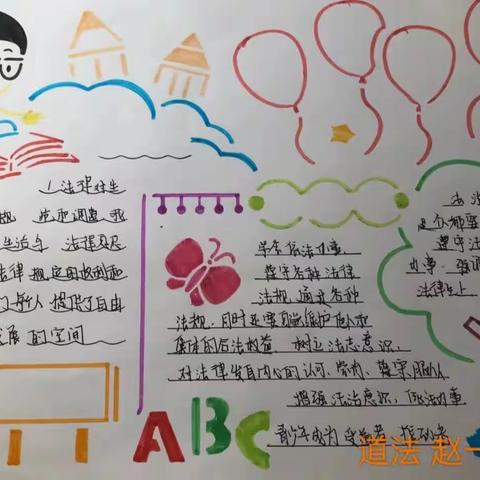 1.法律对生
规
生活与 法律息息
法律规定的权利和
人提供了自由
发展的空间
学会依法办事,
遵守各种法律
法规,
法规,同时还要自觉维护他人和
集体的合法权益 树立法治意识,
对法律发自内心的认可、崇尚、遵守和服从
增强法治意识,依法办事
青少年成为
遵守法
办事,强调
法律至上
ABC
道法 赵一